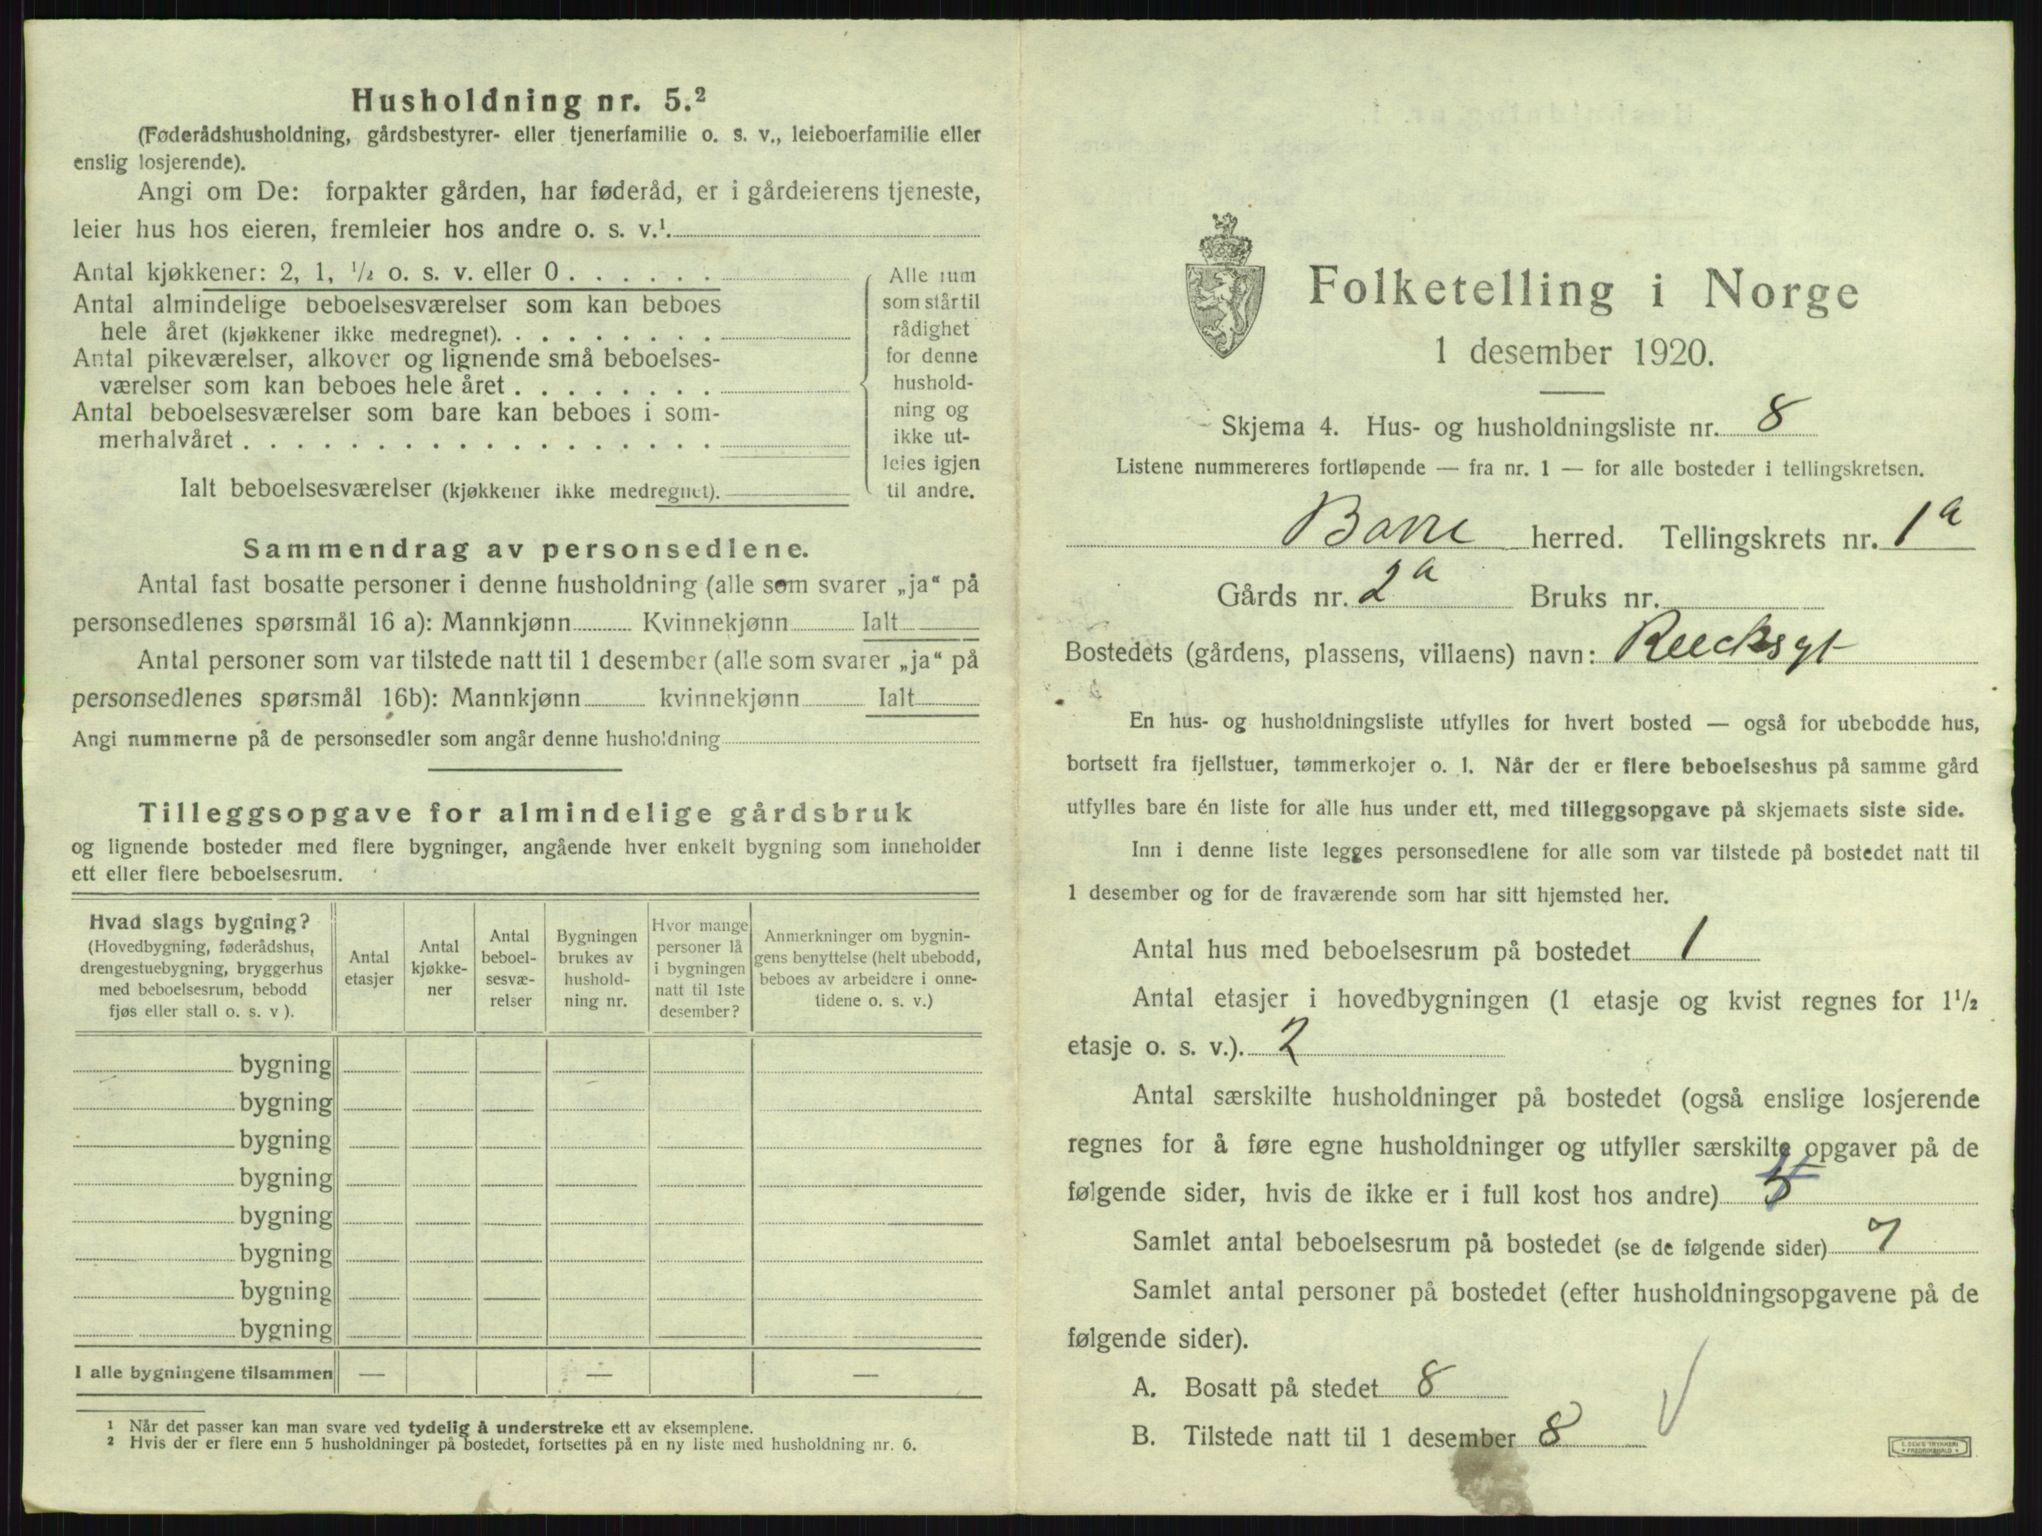 Husholdning nr. 5.²
(Føderådshusholdning, gårdsbestyrer- eller tjenerfamilie o. s. v., leieboerfamilie eller
enslig losjerende).
Angi om De: forpakter gården, har føderåd, er i gårdeierens tjeneste,
leier hus hos eieren, fremleier hos andre o. s. v.¹.
Antal kjøkkener: 2, 1, ½ o. s. v. eller 0 . . . . . .
Antal almindelige beboelsesværelser som kan beboes
hele året (kjøkkener ikke medregnet). . . . . . . . .
Antal pikeværelser, alkover og lignende små beboelses-
værelser som kan beboes hele året . . . . . . . .
Antal beboelsesværelser som bare kan beboes i som-
merhalvåret . . . . . . . . . . . . . . . . . .
Ialt beboelsesværelser (kjøkkener ikke medregnet).
Alle rum
som står til
rådighet
for denne
hushold-
ning og
ikke ut-
leies igjen
til andre.
Sammendrag av personsedlene.
Antal fast bosatte personer i denne husholdning (alle som svarer „ja“ på
personsedlenes spørsmål 16 a): Mannkjønn Kvinnekjønn Ialt
Antal personer som var tilstede natt til 1 desember (alle som svarer „ja“ på
personsedlenes spørsmål 16b): Mannkjønn kvinnekjønn Ialt
Angi nummerne på de personsedler som angår denne husholdning
Tilleggsopgave for almindelige gårdsbruk
og lignende bosteder med flere bygninger, angående hver enkelt bygning som inneholder
ett eller flere beboelsesrum.
Hvad slags bygning?
(Hovedbygning, føderådshus,
drengestuebygning, bryggerhus
med beboelsesrum, bebodd
fjøs eller stall o. s. v ).
Antal
etasjer
Antal
kjøkke-
ner
Antal
beboel-
sesvæ-
relser
Bygningen
brukes av
hushold-
ning nr.
Hvor mange
personer lå
i bygningen
natt til 1ste
desember?
Anmerkninger om bygnin-
gens benyttelse (helt ubebodd,
beboes av arbeidere i onne-
tidene o. s. v.)
bygning
bygning
bygning
bygning
bygning
bygning
bygning
bygning
I alle bygningene tilsammen — — —
¹ Når det passer kan man svare ved tydelig å understreke ett av eksemplene.
² Hvis der er flere enn 5 husholdninger på bostedet, fortsettes på en ny liste med husholdning nr. 6.
Folketelling i Norge
1 desember 1920.
Skjema 4. Hus- og husholdningsliste nr. 8
Listene nummereres fortløpende — fra nr. 1 — for alle bosteder i tellingskretsen.
Borre herred. Tellingskrets nr. 1a
Gårds nr. 2a Bruks nr.
Bostedets (gårdens, plassens, villaens) navn: Reecksgt
En hus- og husholdningsliste utfylles for hvert bosted — også for ubebodde hus,
bortsett fra fjellstuer, tømmerkojer o. l. Når der er flere beboelseshus på samme gård
utfylles bare én liste for alle hus under ett, med tilleggsopgave på skjemaets siste side.
Inn i denne liste legges personsedlene for alle som var tilstede på bostedet natt til
1 desember og for de fraværende som har sitt hjemsted her.
Antal hus med beboelsesrum på bostedet 1
Antal etasjer i hovedbygningen (1 etasje og kvist regnes for 1½
etasje o. s. v.). 2
Antal særskilte husholdninger på bostedet (også enslige losjerende
regnes for å føre egne husholdninger og utfyller særskilte opgaver på de
følgende sider, hvis de ikke er i full kost hos andre)
Samlet antal beboelsesrum på bostedet (se de følgende sider) 7
Samlet antal personer på bostedet (efter husholdningsopgavene på de
følgende sider).
A. Bosatt på stedet 8
B. Tilstede natt til 1 desember 8